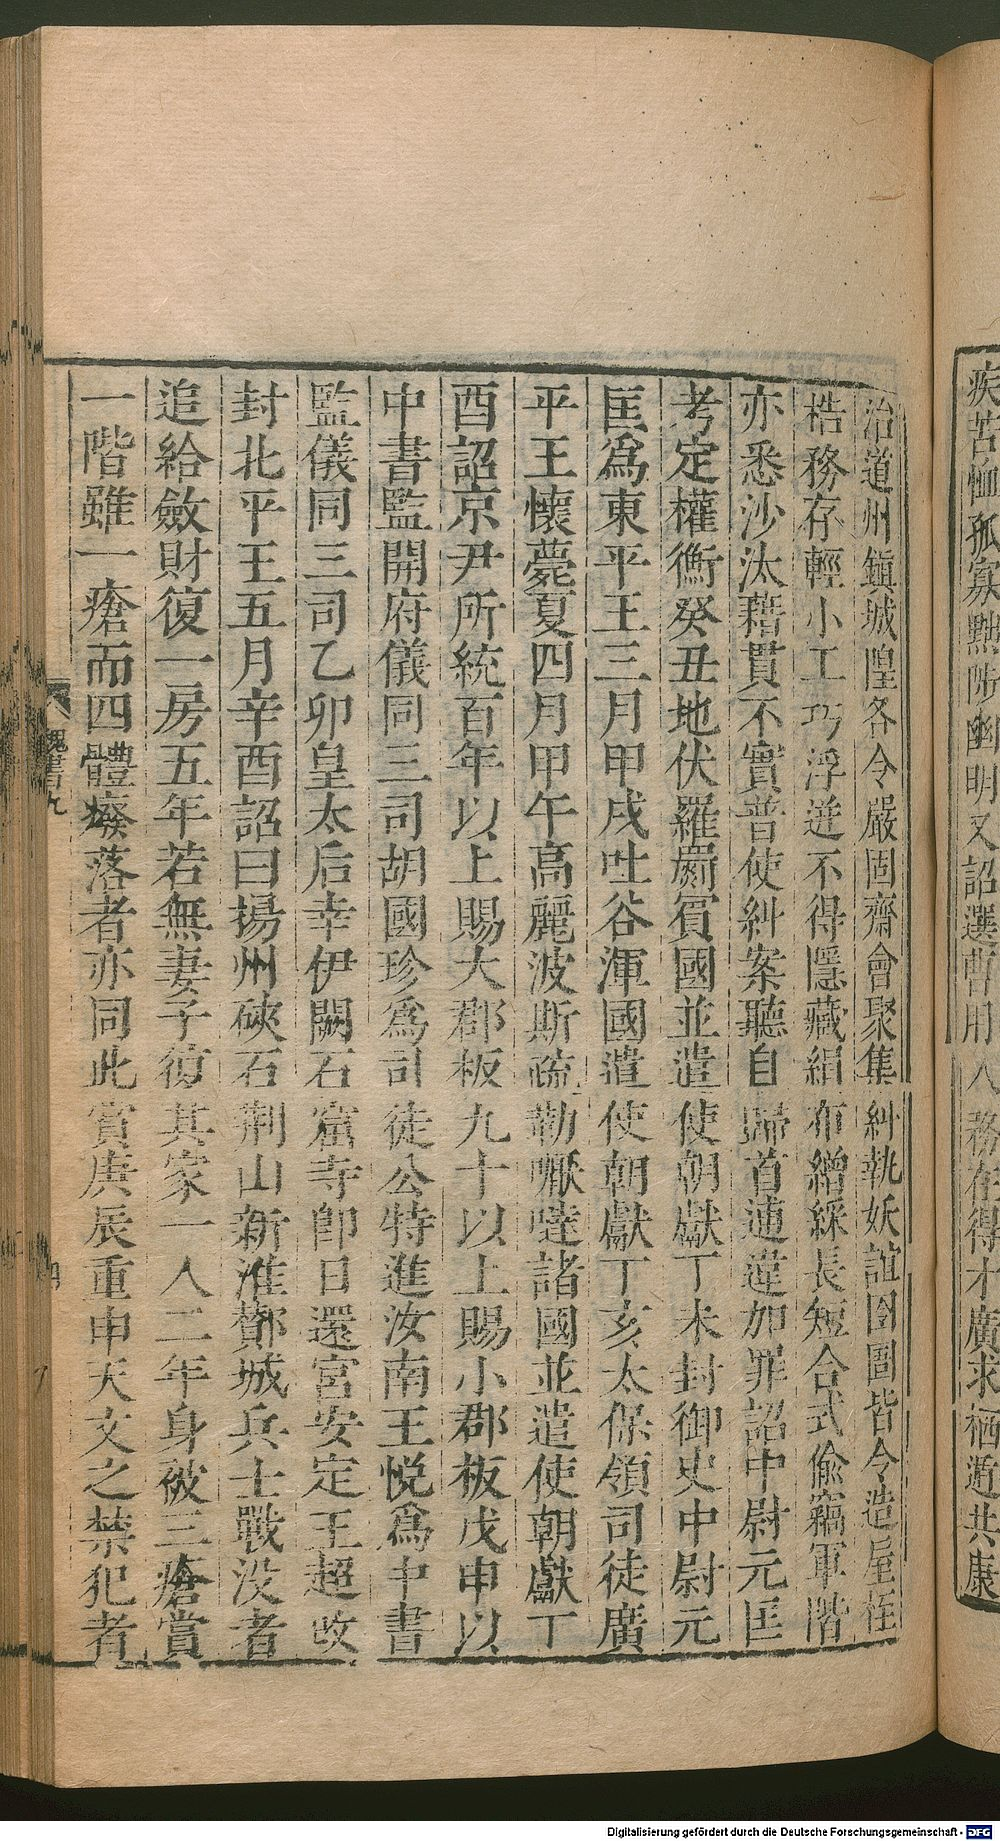 疾苦恤孤寡黜陟幽明又詔選曹用八務在得才廣求栖遁共康
治道州鎭城隍各令嚴固齋會聚集糾執妖諠囹圄皆令造屋桎
梏務存輕小工巧浮迸不得隱藏絹布繒綵長短合式偷竊軍階
亦悉沙汰藉貫不實普使糾案聽自歸首逋違加罪詔中尉元匡
考定權衡癸丑地伏羅罽賓國並遣使朝獻丁未封御史中尉元
匡爲東平王三月甲戌吐谷渾國遣使朝獻丁亥太保領司徒廣
平王懷薨夏四月甲午高麗波斯疏勒嚈噠諸國並遣使朝獻丁
酉詔京尹所統百年以上賜大郡板九十以上賜小郡板戊申以
中書監開府儀同三司胡國珍爲司徒公特進汝南王悦爲中書
監儀同三司乙卯皇太后幸伊闕石窟寺即日還宮安定王超改
封北平王五月辛酉詔曰揚州硤石荆山新淮酇城兵士戰没者
追給斂財復一房五年若無妻子復其家一人二年身被三瘡賞
一階雖一瘡而四體癈落者亦同此賞庚辰重申天文之禁犯者
魏書百九
四
Digitalisierung gefördert durch die Deutsche Forschungsgemeinschaft - DFG